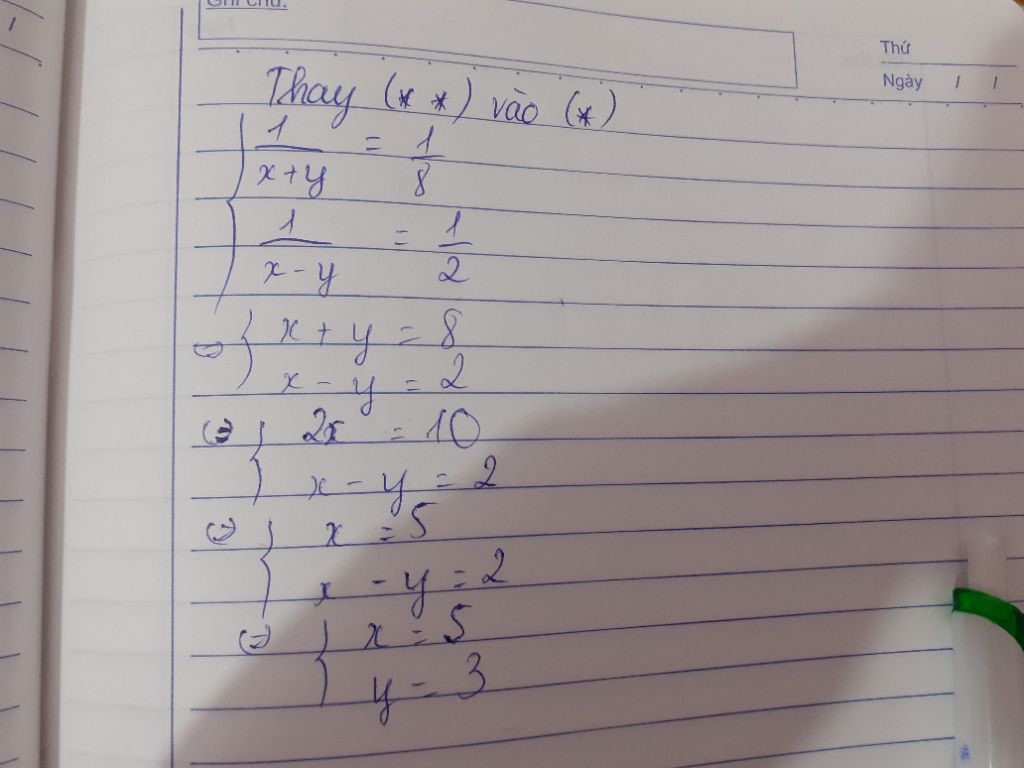 Ghi chú:
Thứ
Ngày / /
Thay (**) vào (*)
{ 1/(x+y) = 1/8
1/(x-y) = 1/2
⇔ { x + y = 8
x - y = 2
⇔ { 2x = 10
x - y = 2
⇔ { x = 5
x - y = 2
⇔ { x = 5
y = 3